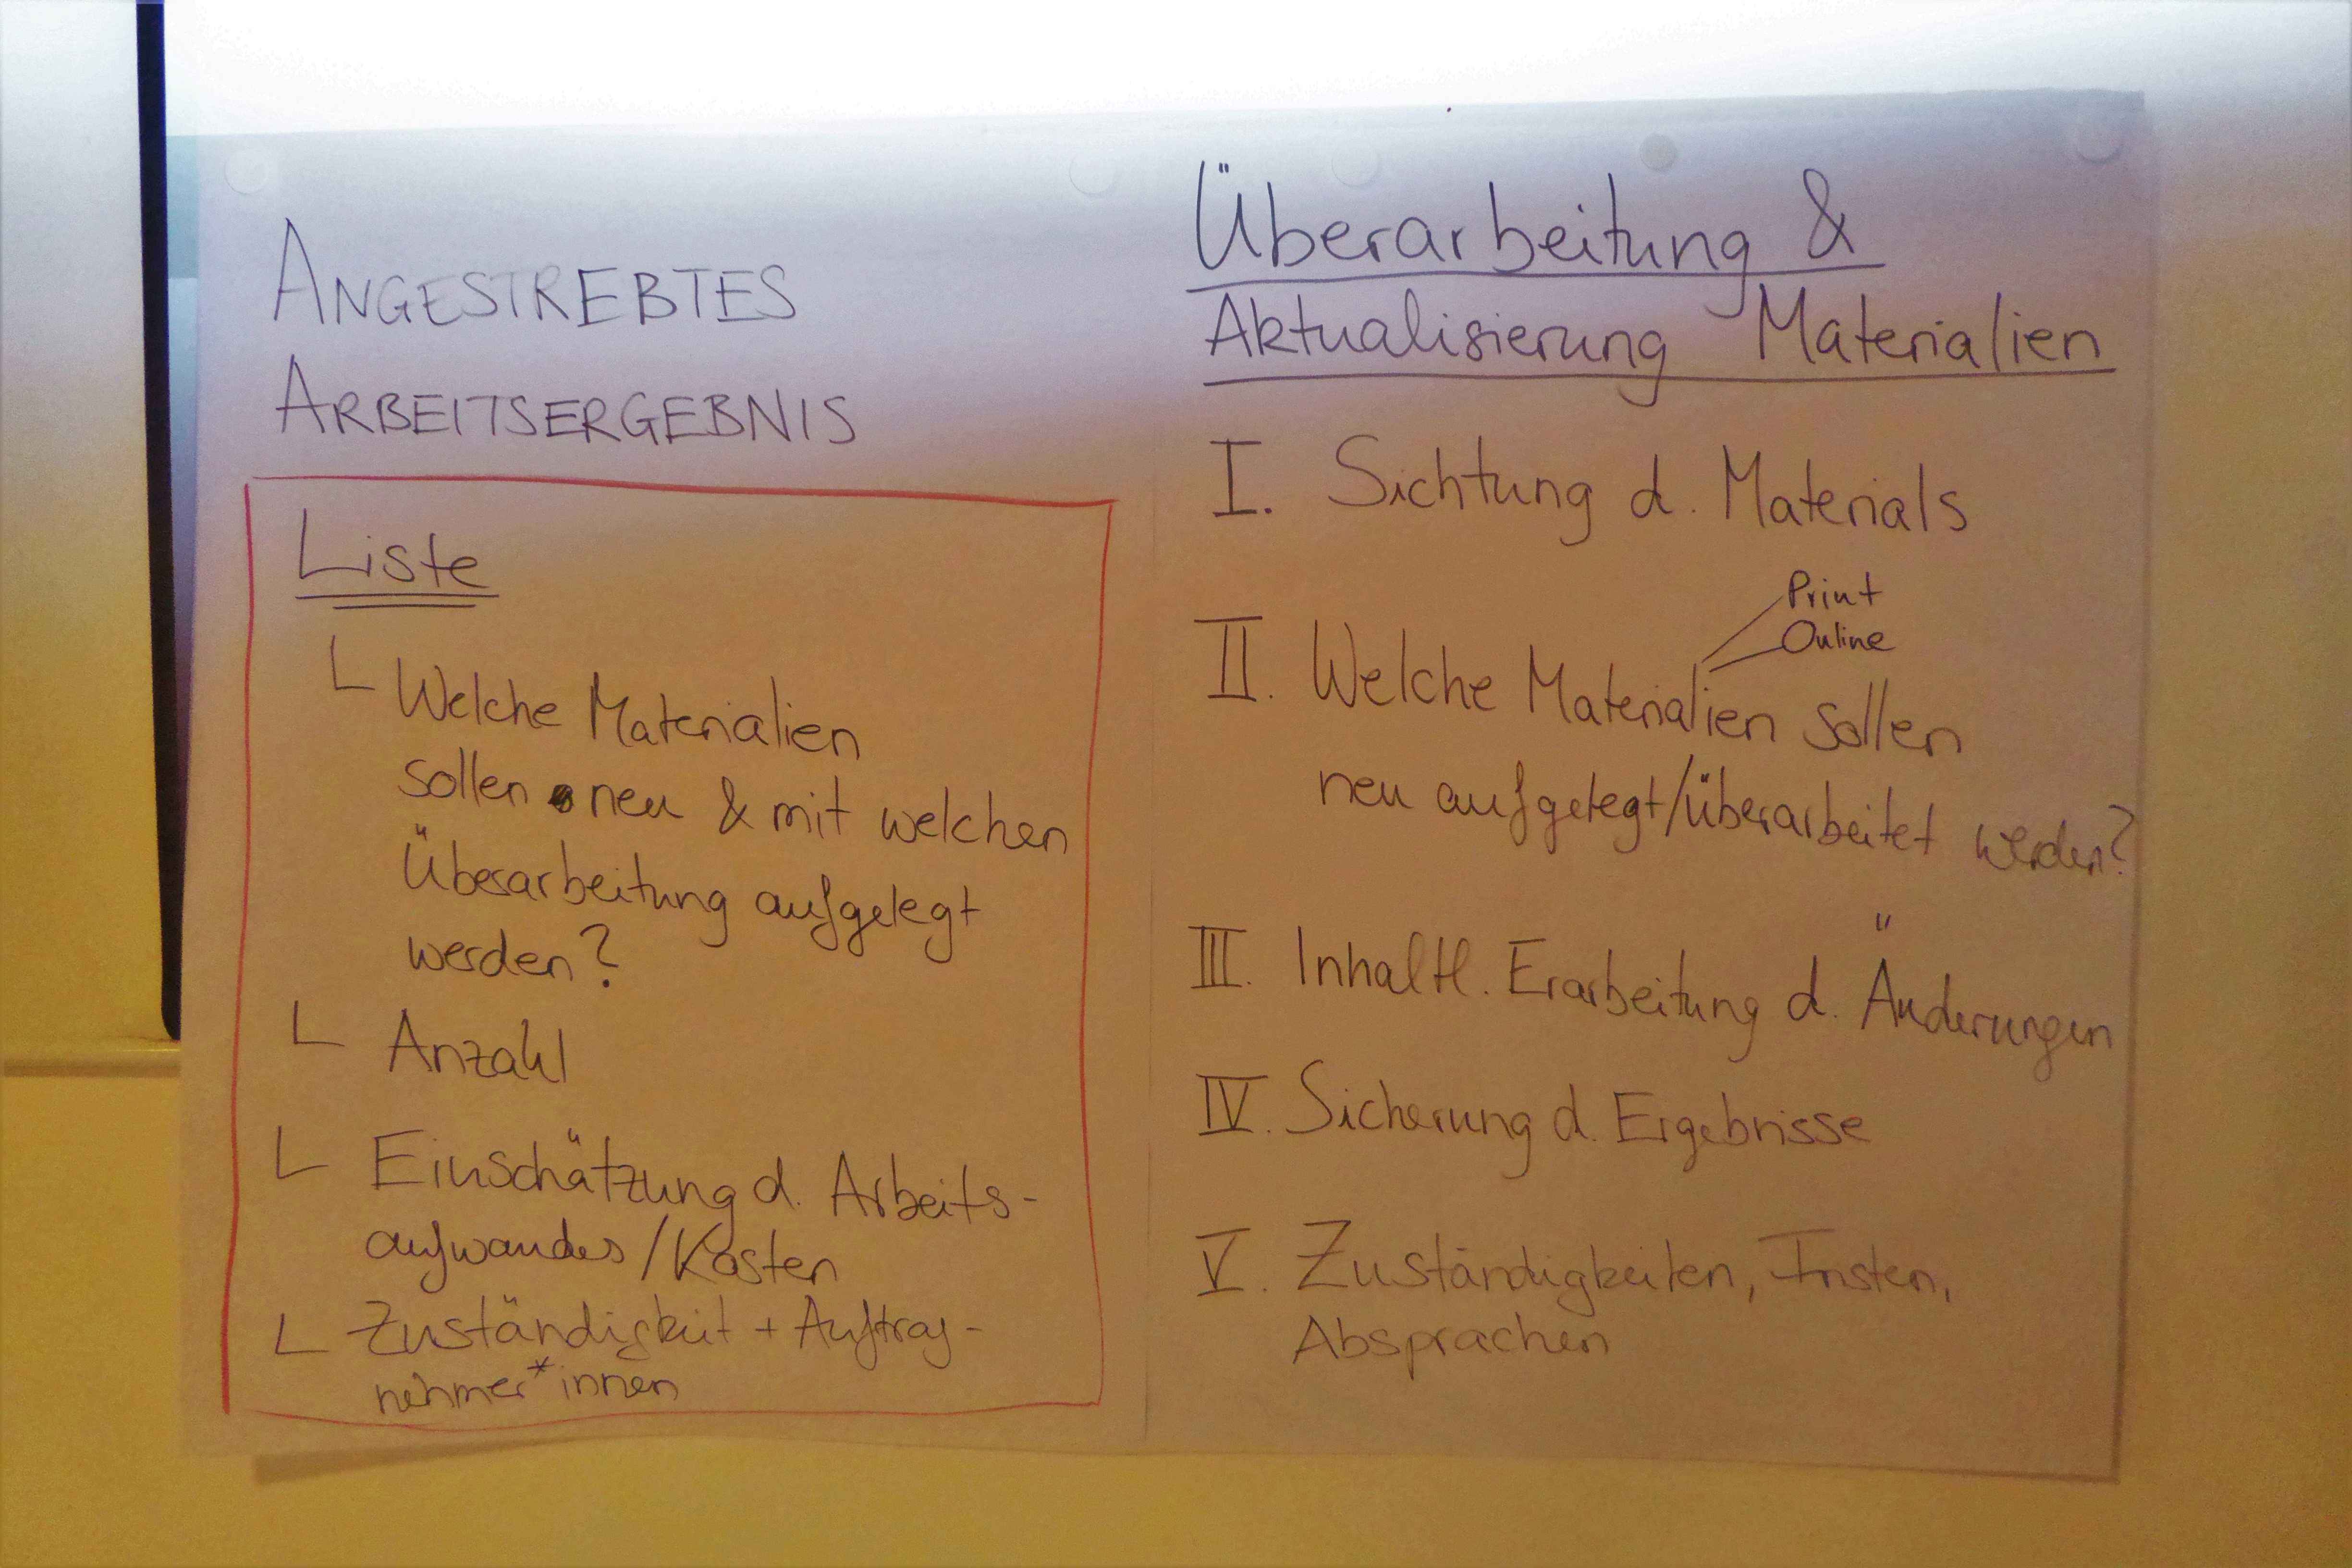 ANGESTREBTES
ARBEITSERGEBNIS
Liste
Welche Materialien
sollen neu & mit welchen
Überarbeitung aufgelegt
werden?
Anzahl
Einschätzung d. Arbeits-
aufwandes/Kosten
Zuständigkeit + Auftrag-
nehmer*innen
Überarbeitung &
Aktualisierung Materialien
I. Sichtung d. Materials
Print
Online
II. Welche Materialien sollen
neu aufgelegt/überarbeitet werden?
III. Inhaltl. Erarbeitung d. Änderungen
IV. Sicherung d. Ergebnisse
V. Zuständigkeiten, Fristen,
Absprachen